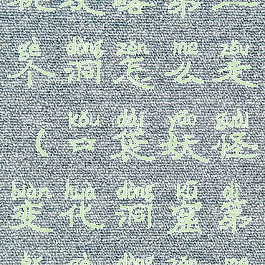 gè dòng zěn me zǒu
个洞怎么走
kǒu dài yāo guài
（口袋妖怪
biàn huà dòng kū dì
变化洞窟第